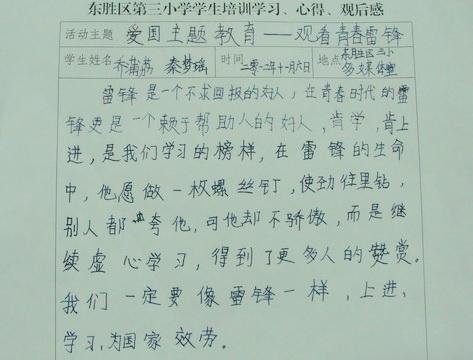 东胜区第三小学学生培训学习、心得、观后感
活动主题 爱国主题教育——观看青春雷锋
学生姓名 乔蒲荔 秦梦瑶 时间 二零一二年十一月六日 地点 东胜区三小多媒体室
雷锋是一个不求回报的好人，在青春时代的雷
锋更是一个乐于帮助人的好人，肯学，肯上
进，是我们学习的榜样，在雷锋的生命
中，他愿做一枚螺丝钉，使劲往里钻，
别人都夸他，可他却不骄傲，而是继
续虚心学习，得到了更多人的赞赏。
我们一定要像雷锋一样，上进、
学习，为国家效劳。